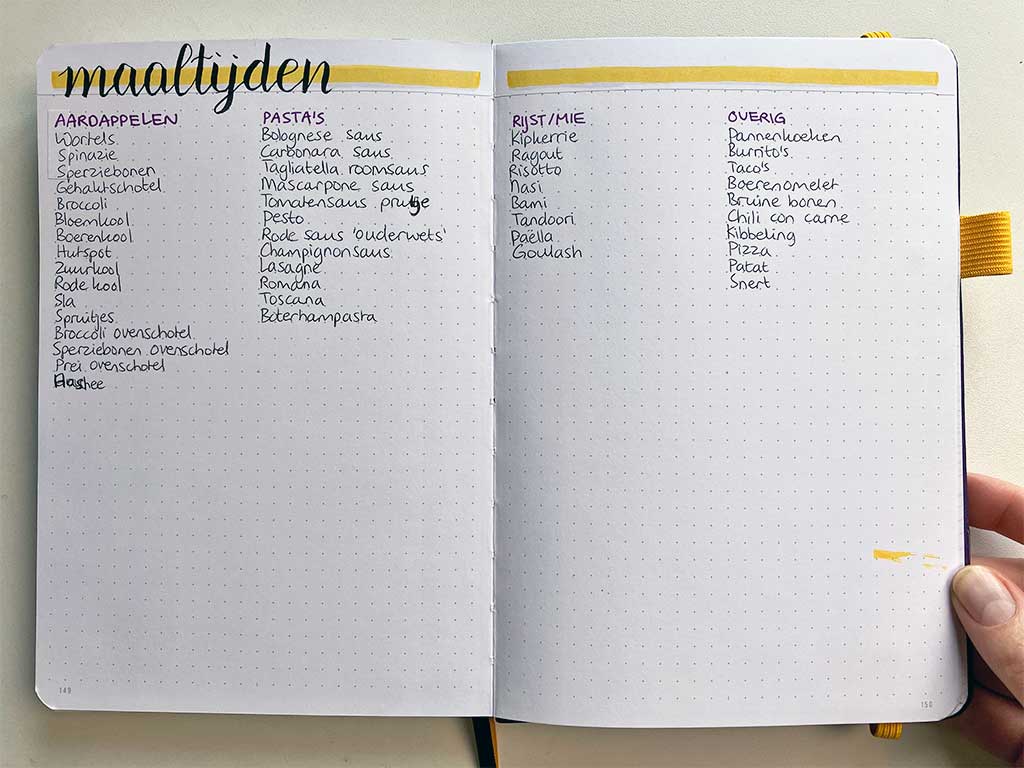 maaltijden
AARDAPPELEN
Wortels
Spinazie
Sperziebonen
Gehaktschotel
Broccoli
Bloemkool
Boerenkool
Hutspot
Zuurkool
Rode kool
Sla
Spruitjes
Broccoli ovenschotel
Sperziebonen ovenschotel
Prei ovenschotel
Hachee
PASTA'S
Bolognese saus
Carbonara saus
Tagliatella roomsaus
Mascarpone saus
Tomatensaus prutje
Pesto
Rode saus 'ouderwets'
Champignonsaus
Lasagne
Romana
Toscana
Boterhampasta
149
RIJST/MIE
Kipkerrie
Ragout
Risotto
Nasi
Bami
Tandoori
Paëlla
Goulash
OVERIG
Pannenkoeken
Burrito's
Taco's
Boerenomelet
Bruine bonen
Chili con carne
Kibbeling
Pizza
Patat
Snert
150